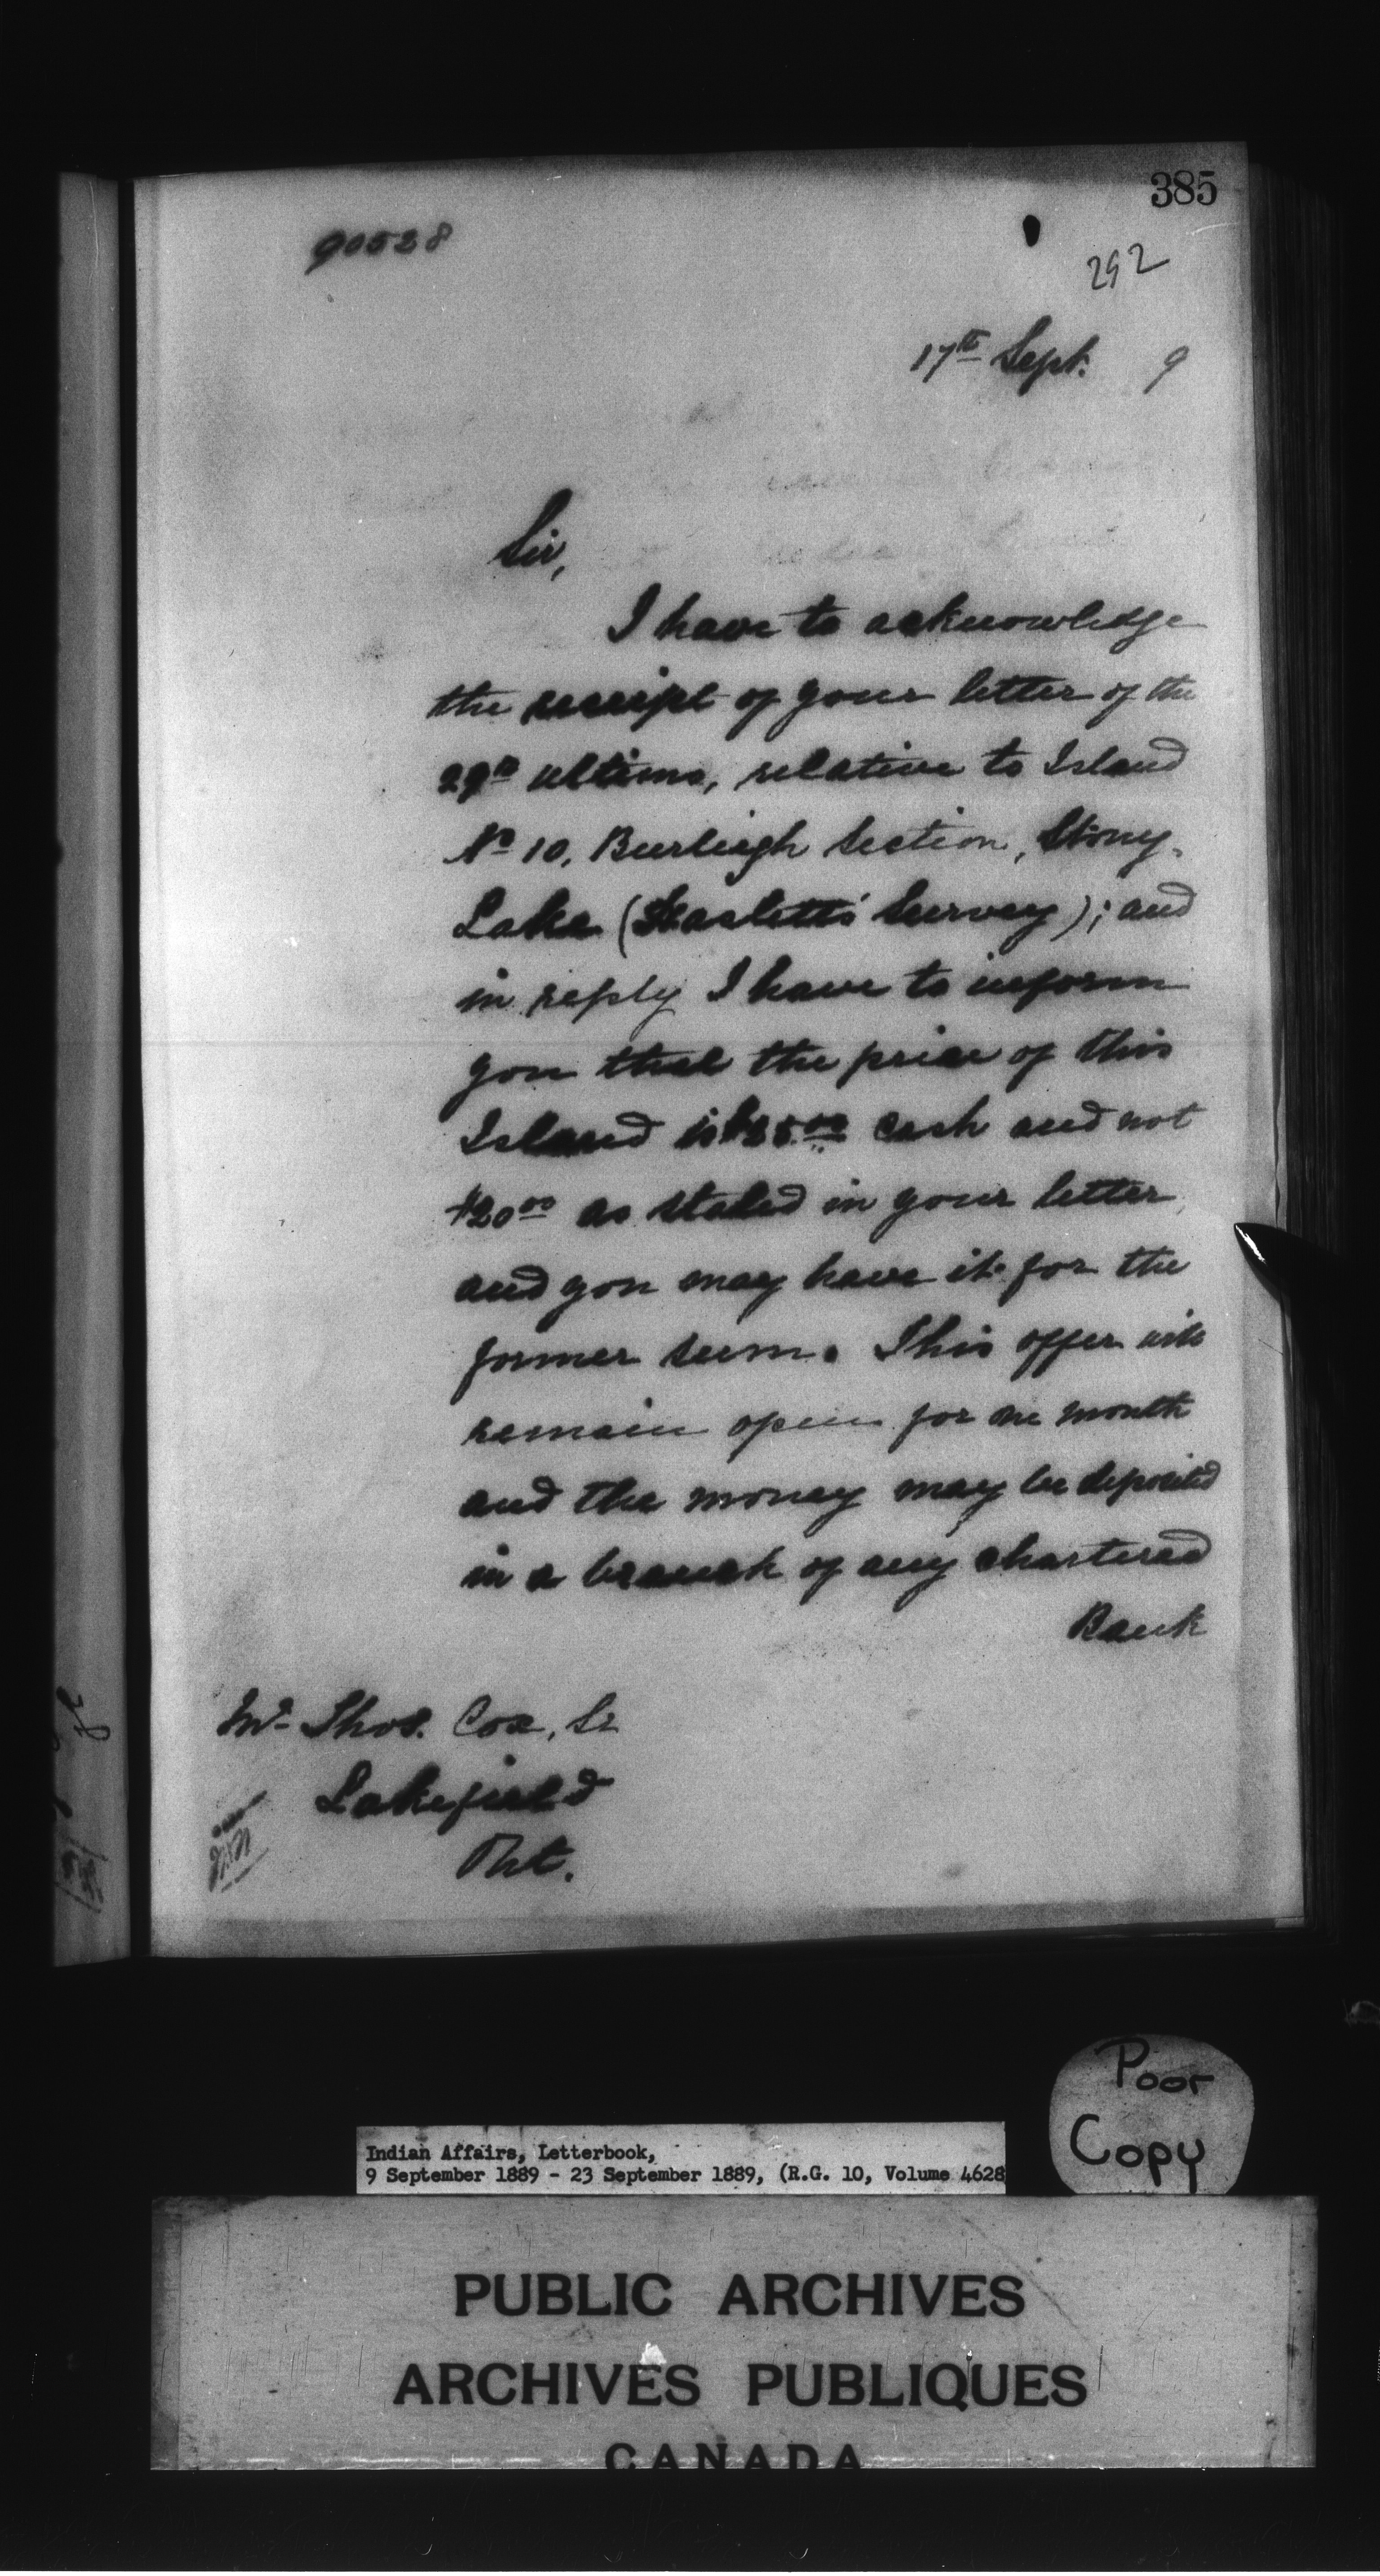 385
90528
292
17th Sept. 9
Sir,
I have to acknowledge
the receipt of your letter of the
29th ultimo, relative to Island
No 10, Burleigh Section, Stony
Lake (Haslett's Survey); and
in reply I have to inform
you that the price of this
Island is $25.00 cash and not
$20.00 as stated in your letter,
and you may have it for the
former sum. This offer will
remain open for one month
and the money may be deposited
in a branch of any chartered
Bank
Mr Thos. Cox, Sr
Lakefield
Ont.
Poor
Copy
Indian Affairs, Letterbook,
9 September 1889 - 23 September 1889, (R.G. 10, Volume 4628
PUBLIC ARCHIVES
ARCHIVES PUBLIQUES
CANADA